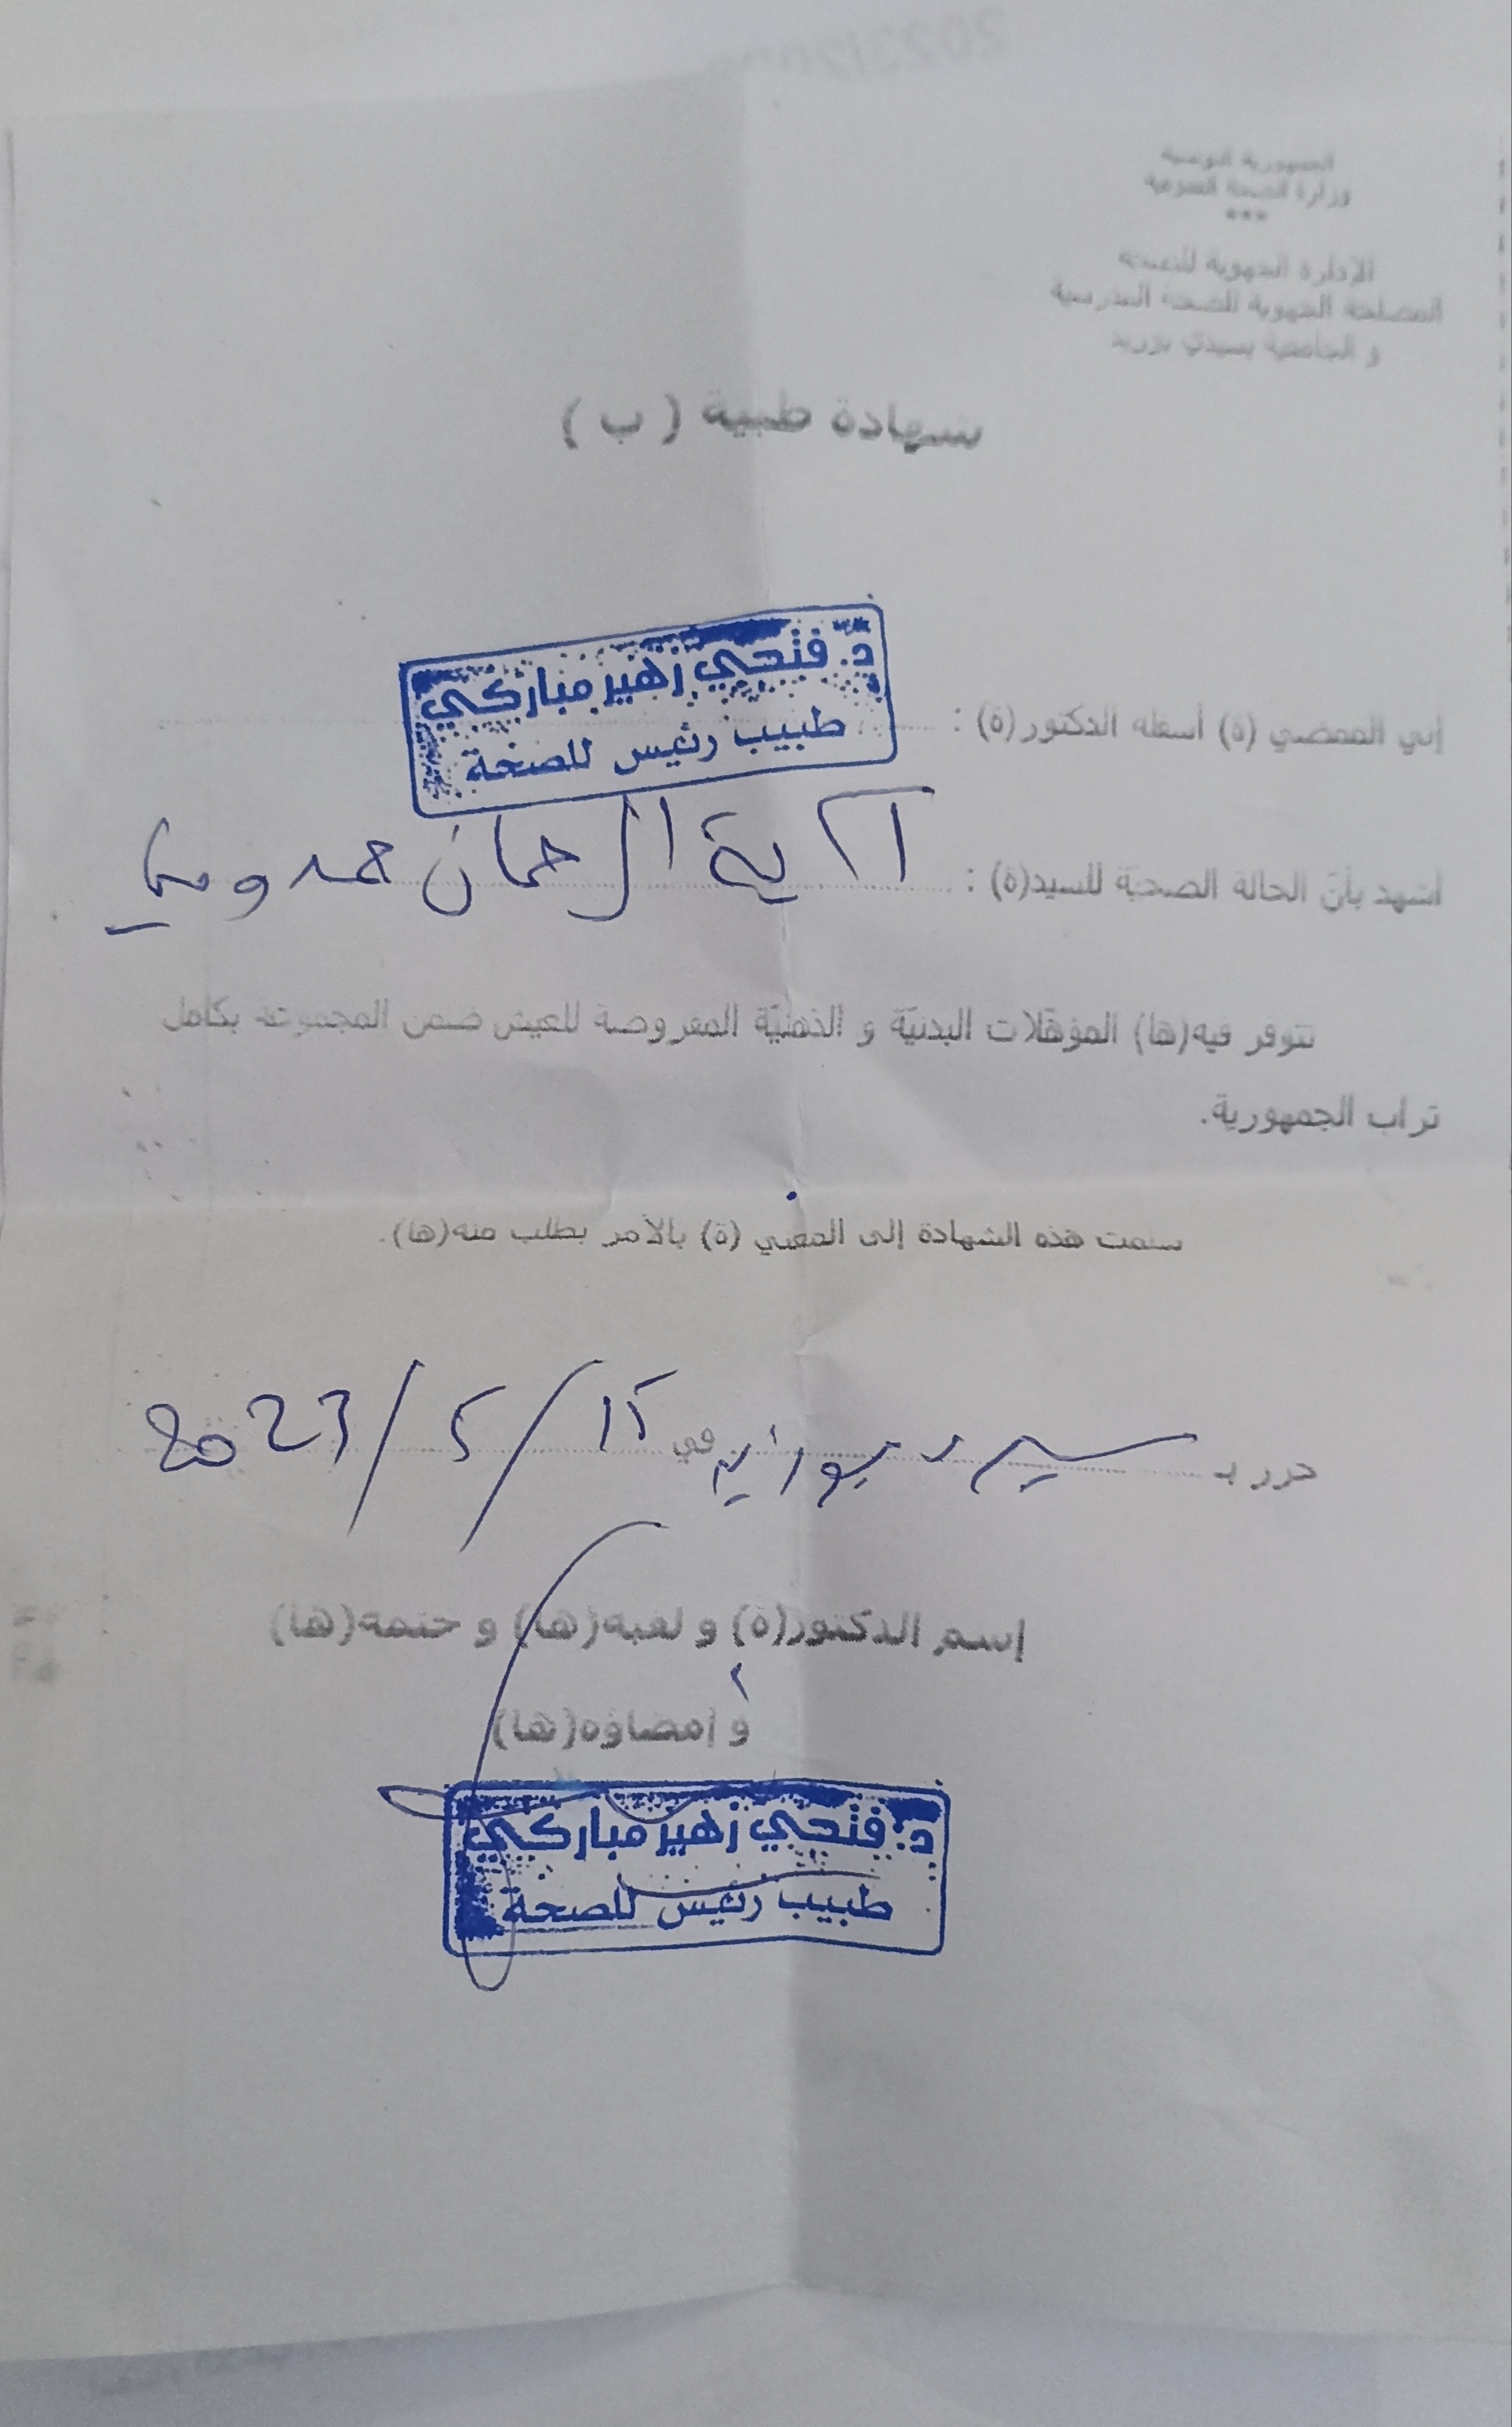 الجمهورية التونسية
وزارة الصحة العمومية
***
الإدارة الجهوية للصحة
المصلحة الجهوية للصحة المدرسية
و الجامعية بسيدي بوزيد
شهادة طبية ( ب )
د. فتحي زهير مباركي
طبيب رئيس للصحة
إني الممضي (ة) أسفله الدكتور (ة) :
أشهد بأن الحالة الصحية للسيد(ة) : آية الرحمان حمدوني
تتوفر فيه(ها) المؤهّلات البدنيّة و الذهنيّة المفروضة للعيش ضمن المجموعة بكامل
تراب الجمهورية.
سلمت هذه الشهادة إلى المعني (ة) بالأمر بطلب منه(ها).
حرر بـ سيدي بوزيد في 15/5/2023
إسم الدكتور(ة) و لقبه(ها) و ختمه(ها)
و إمضاؤه(ها)
د. فتحي زهير مباركي
طبيب رئيس للصحة